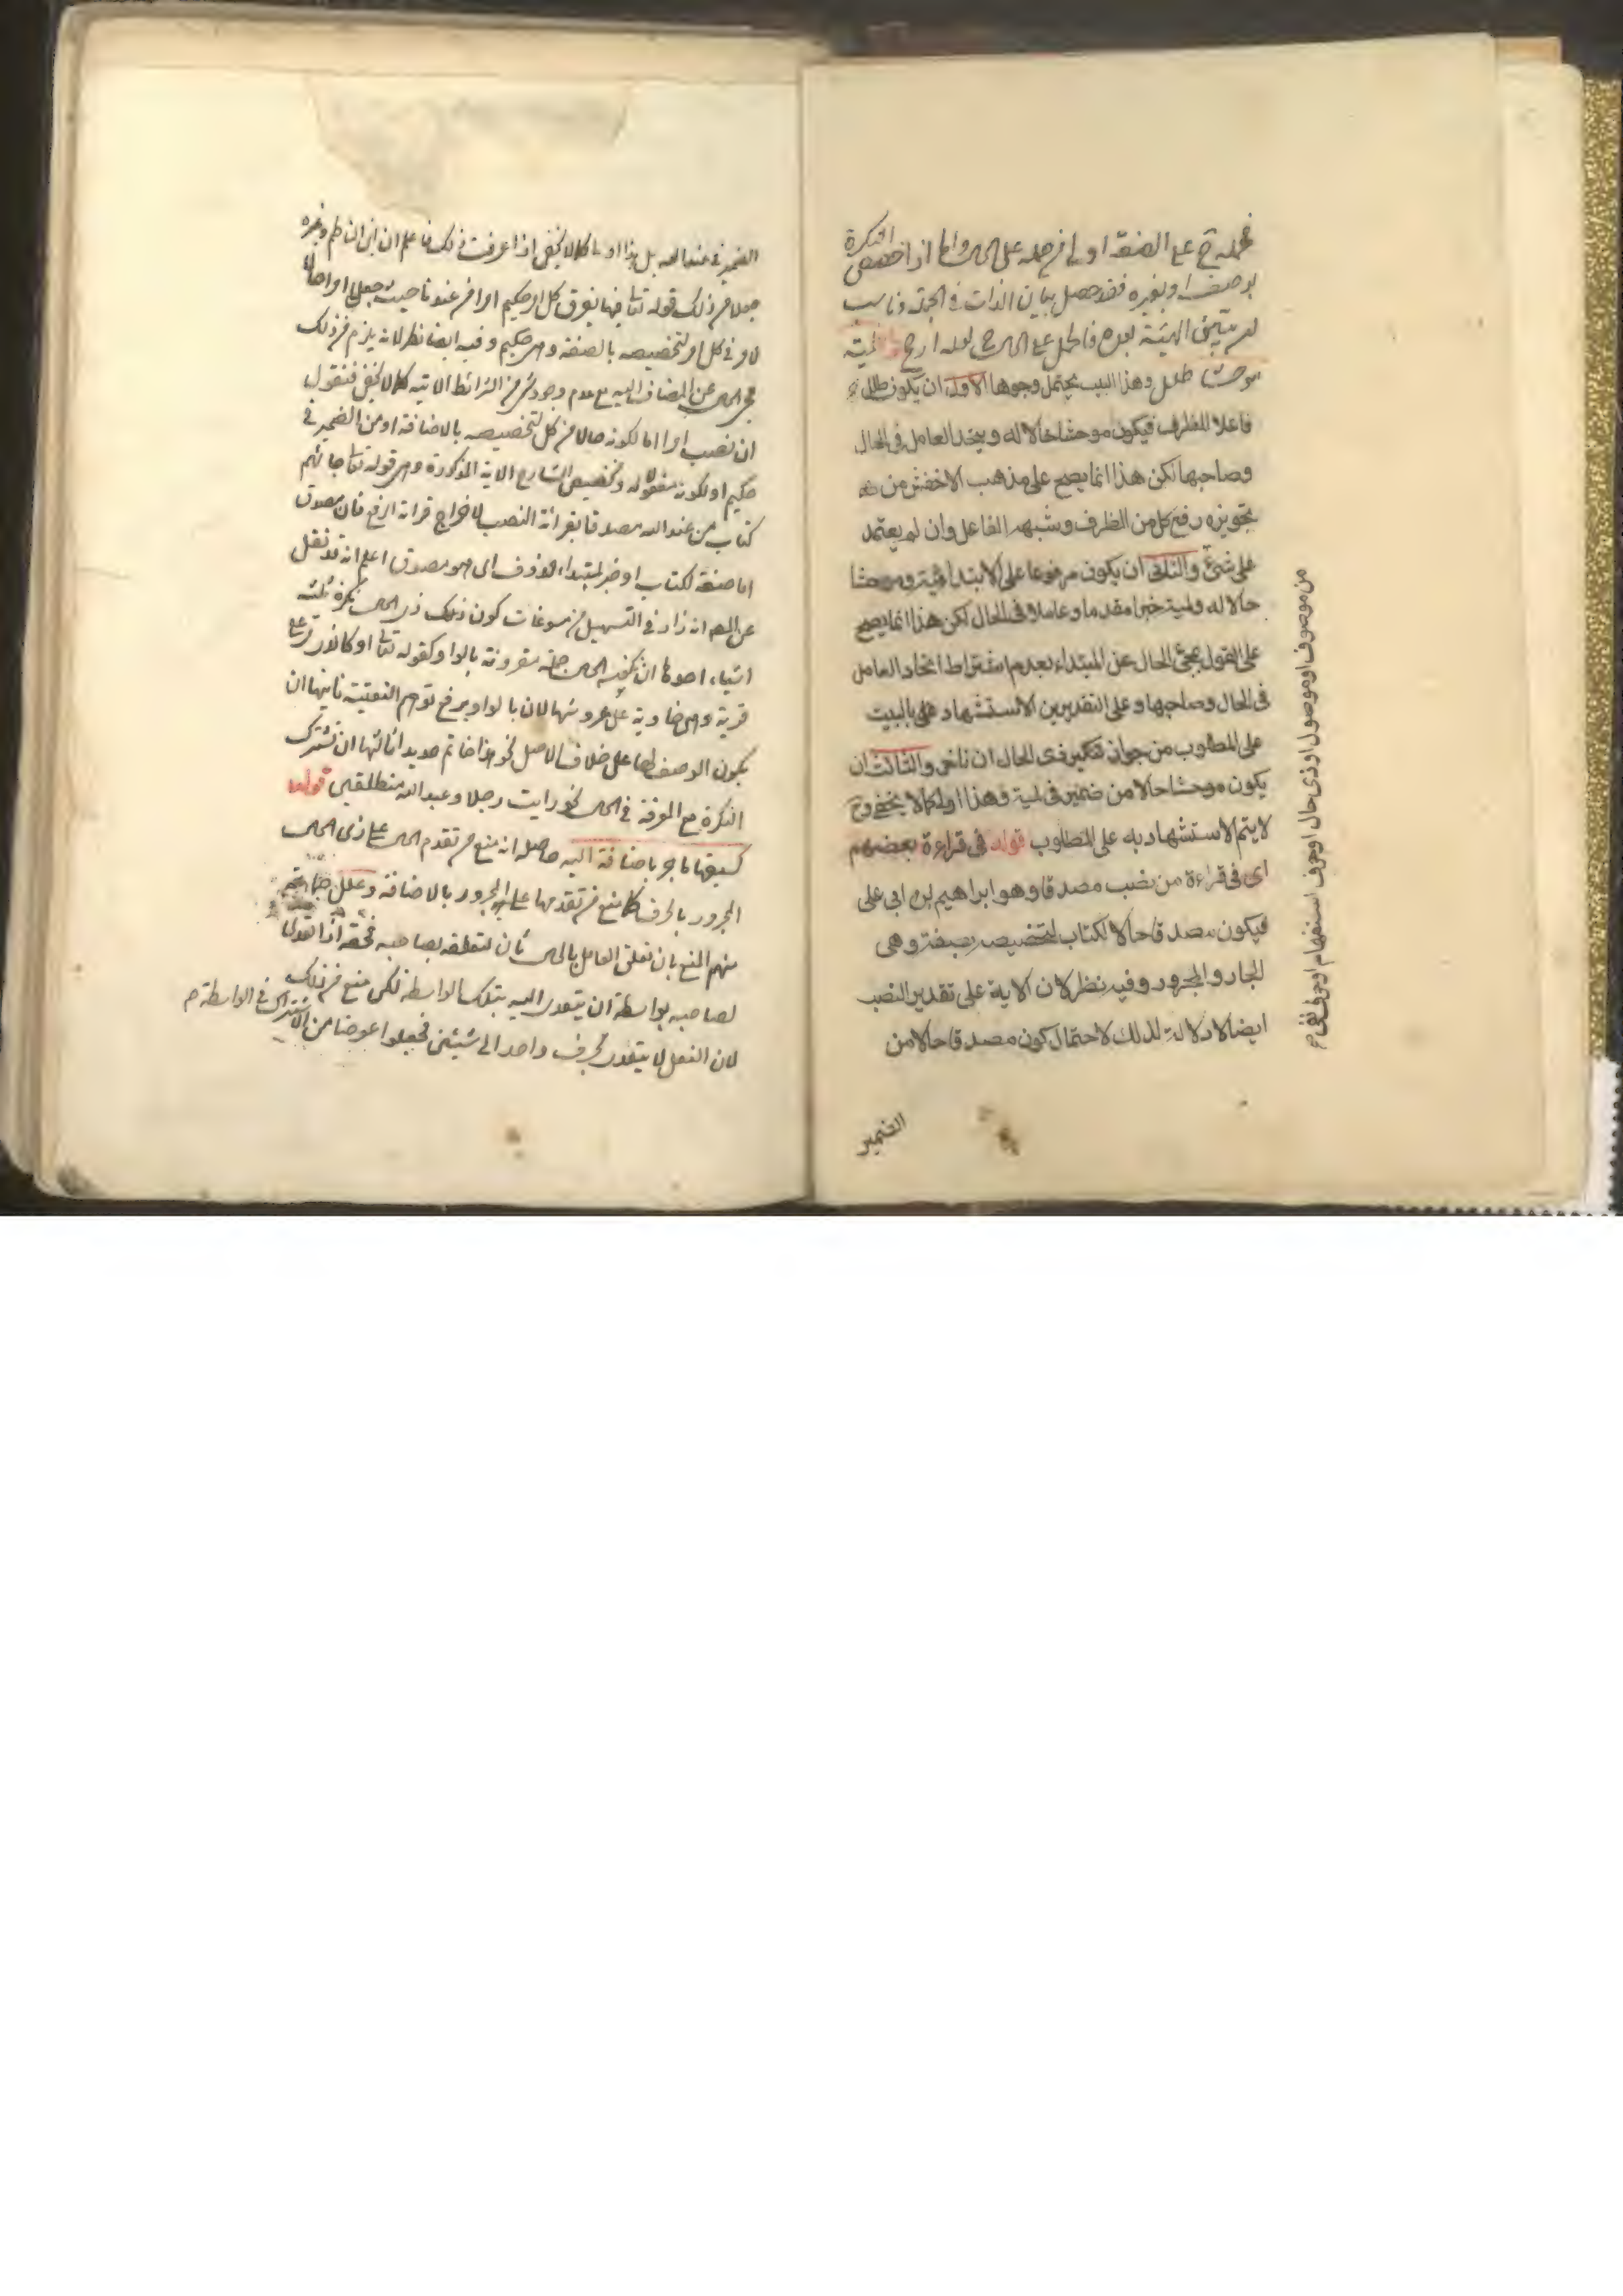 فحمله ح على الصفة اولى من حمله على الحال واما اذا خصص النكرة
بوصف او بغيره فقد حصل بيان الذات في الجملة وناسب
بعده فالحمل على الحال ح لعله ارجح لمية
موحشا طلل وهذا البيت يحتمل وجوها الاول ان يكون طلل
فاعلا للظرف فيكون موحشا حالا له ويتحد العامل في الحال
وصاحبها لكن هذا انما يصح على مذهب الاخفش من
تجويزه رفع كل من الظرف وشبهه الفاعل وان لم يعتمد
على شئ والثاني ان يكون مرفوعا على الابتدائية وموحشا
حالا له ولمية خبرا مقدما وعاملا في الحال لكن هذا انما يصح
على القول بمجئ الحال عن المبتداء بعدم اشتراط اتحاد العامل
في الحال وصاحبها وعلى التقديرين الاستشهاد بالبيت
على المطلوب من جواز تنكير ذى الحال ان تاخر والثالث ان
يكون موحشا حالا من ضمير في لمية وهذا اولى كما لا يخفى وح
لا يتم الاستشهاد به على المطلوب قوله في قراءة بعضهم
اى في قراءة من نصب مصدقا وهو ابراهيم بن ابي على
فيكون مصدقا حالا لكتاب لتخصيصه بصفته وهى
الجار والمجرور وفيه نظر لان الاية على تقدير النصب
ايضا لا دلالة لذلك لاحتمال كون مصدقا حالا من
الضمير
من موصوف او موصول او ذى حال او حرف استفهام او حرف نفى
الضمير في عند الله بل هذا اولى كما لا يخفى اذا عرفت ذلك فاعلم ان ابن الناظم وغيره
جعلا من ذلك قوله تعالى فيها يفرق كل امر حكيم امرا من عندنا حيث جعل امرا حالا
لامر في كل امر لتخصيصه بالصفة وهى حكيم وفيه ايضا نظر لانه يلزم من ذلك
مجئ الحال عن المضاف اليه مع عدم وجود شئ من الشرائط الاتية كما لا يخفى فنقول
ان نصب امرا اما لكونه حالا من كل لتخصيصه بالاضافة او من الضمير في
حكيم او لكونه مفعولا له وتخصيص الشارح الاية المذكورة وهى قوله تعالى جائهم
كتاب من عند الله مصدقا بقرائة النصب لاخراج قرائة الرفع فان مصدق
اما صفة لكتاب او خبر لمبتداء محذوف اى هو مصدق اعلم انه قد نقل
عن المص انه زاد في التسهيل من مسوغات كون ذلك ذى الحال نكرة ثلثة
اشياء احدها ان يكون الحال جملة مقرونة بالواو كقوله تعالى او كالذى مر على
قرية وهى خاوية على عروشها لان بالواو يرفع توهم النعتية ثانيها ان
يكون الوصف لها على خلاف الاصل نحو هذا خاتم حديدا ثالثها ان تشترك
النكرة مع المعرفة في الحال نحو رايت رجلا وعبد الله منطلقين قوله
كسبقها ما جر باضافة اليه حاصله انه منع من تقدم الحال على ذى الحال
المجرور بالحرف كما منع من تقدمها على المجرور بالاضافة وعلل جماعة
منهم المنع بان تعلق العامل بالحال ثان لتعلقه بصاحبه فحقه اذا تعدى
لصاحبه بواسطة ان يتعدى اليه بتلك الواسطة لكن منع من ذلك
لان الفعل لا يتعدى بحرف واحد الى شيئين فجعلوا عوضا من الاشتراك في الواسطة